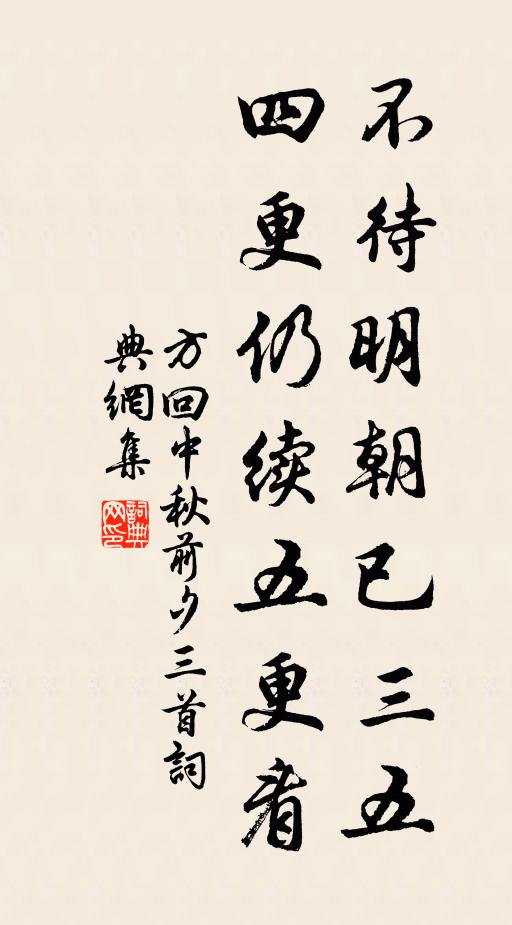 不待明朝已三五
四更仍续五更看
方回中秋前夕三首詞
典網集
詞典网印